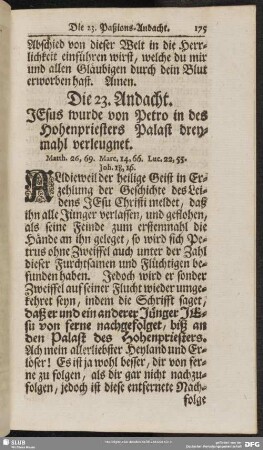 Die 23. Paßions-Andacht. 175
Abschied von dieser Welt in die Herr-
lichkeit einführen wirst, welche du mir
und allen Gläubigen durch dein Blut
erworben hast. Amen.
Die 23. Andacht.
JEsus wurde von Petro in des
Hohenpriesters Palast drey-
mahl verleugnet.
Matth. 26, 69. Marc. 14, 66. Luc. 22, 55.
Joh. 18, 16.
ALldieweil der heilige Geist in Er-
zehlung der Geschichte des Lei-
dens JEsu Christi meldet, daß
ihn alle Jünger verlassen, und geflohen,
als seine Feinde zum erstenmahl die
Hände an ihn geleget, so wird sich Pe-
trus ohne Zweiffel auch unter der Zahl
dieser Furchtsamen und Flüchtigen be-
funden haben. Jedoch wird er sonder
Zweiffel auf seiner Flucht wieder umge-
kehret seyn, indem die Schrifft saget,
daß er und ein anderer Jünger JE-
su von ferne nachgefolget, biß an
den Palast des Hohenpriesters.
Ach mein allerliebster Heyland und Er-
löser! Es ist ja wohl besser, dir von fer-
ne zu folgen, als dir gar nicht nachzu-
folgen, jedoch ist diese entfernete Nach-
folge
SLUB
DFG